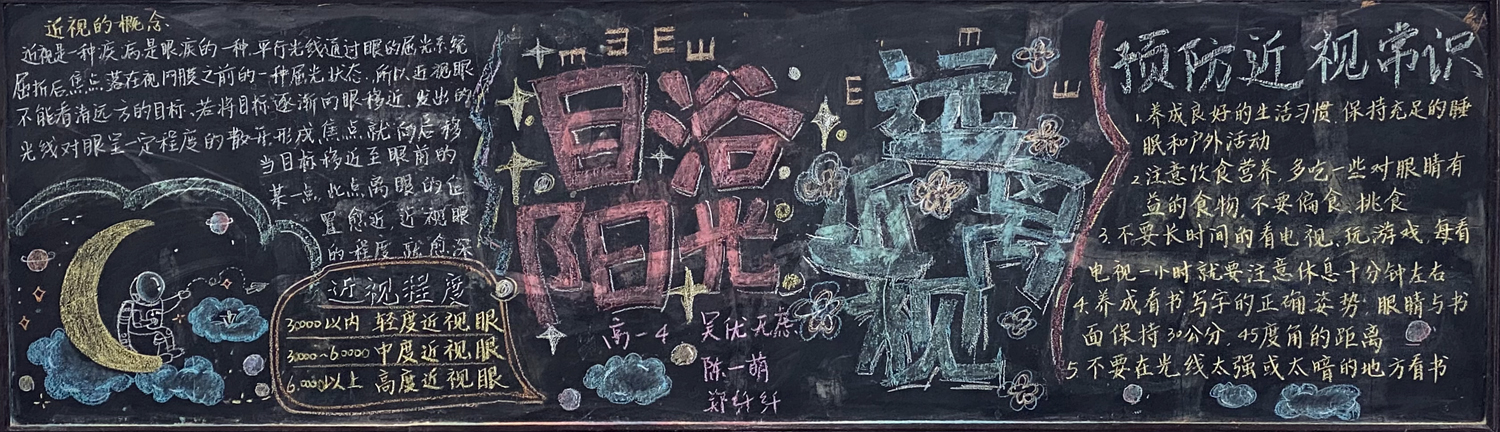 近视的概念
近视是一种疾病是眼疾的一种.平行光线通过眼的屈光系统
屈折后,焦点落在视网膜之前的一种屈光状态.所以近视眼
不能看清远方的目标.若将目标逐渐向眼移近,发出的
光线对眼呈一定程度的散开,形成焦点就向后移
当目标移近至眼前的
某一点,此点离眼的位
置愈近,近视眼
的程度就愈深
近视程度
30000以内 轻度近视眼
30000~60000 中度近视眼
60000以上 高度近视眼
目浴
阳光
远离
近视
高一4 吴优无
陈一萌
郑纤纤
预防近视常识
1.养成良好的生活习惯,保持充足的睡
眠和户外活动
2.注意饮食营养,多吃一些对眼睛有
益的食物,不要偏食、挑食
3.不要长时间的看电视、玩游戏,每看
电视一小时就要注意休息十分钟左右
4.养成看书写字的正确姿势,眼睛与书
面保持30公分,45度角的距离
5.不要在光线太强或太暗的地方看书